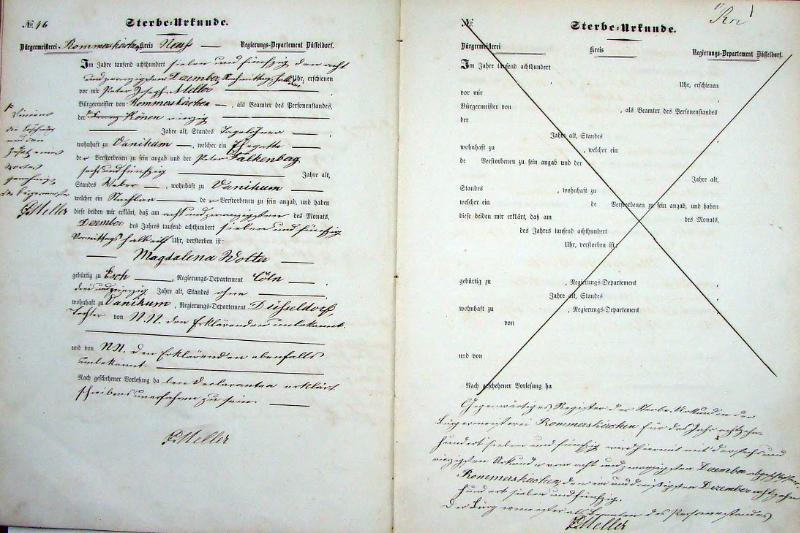 № 46
Sterbe-Urkunde.
Bürgermeisterei Rommerskirchen Kreis Neuß Regierungs-Departement Düsseldorf.
Im Jahre tausend achthundert sieben und fünfzig, den acht
und zwanzigsten Dezember, Nachmittags Uhr, erschienen
vor mir Peter Joseph Meller
Bürgermeister von Rommerskirchen, als Beamter des Personenstandes,
der Könen vierzig
Jahre alt, Standes Tagelöhner
wohnhaft zu Vanikum, welcher ein
de Verstorbenen zu sein angab und der Peter Falkenberg,
sechs und fünfzig Jahre alt,
Standes Weber, wohnhaft zu Vanikum
welcher ein Nachbar de Verstorbenen zu sein angab, und haben
diese beiden mir erklärt, daß am acht und zwanzigsten des Monats
Dezember des Jahres tausend achthundert sieben und fünfzig
Vormittags halb Uhr, verstorben ist:
Magdalena Wolter
gebürtig zu Esch, Regierungs-Departement Cöln
drei und Jahre alt, Standes ohne
wohnhaft zu Vanikum, Regierungs-Departement Düsseldorf,
Tochter von N.N. den Erklärenden unbekannt.
und von N.N. den Erklärenden ebenfalls
unbekannt.
Nach geschehener Vorlesung ha ben Declaranten erklärt
schreibens unerfahren zu sein.
PJMeller
PJMeller
№
Sterbe-Urkunde.
Bürgermeisterei Kreis Regierungs-Departement Düsseldorf.
Im Jahre tausend achthundert
Uhr, erschienen
vor mir
Bürgermeister von , als Beamter des Personenstandes
der
Jahre alt, Standes
wohnhaft zu , welcher ein
de Verstorbenen zu sein angab und der
Jahre alt,
Standes , wohnhaft zu
welcher ein de Verstorbenen zu sein angab, und haben
diese beiden mir erklärt, daß am des Monats,
des Jahres tausend achthundert
Uhr, verstorben ist:
gebürtig zu , Regierungs-Departement
Jahre alt, Standes
wohnhaft zu , Regierungs-Departement
von
und von
Nach geschehener Vorlesung ha
Gegenwärtiges Register der Sterbe-Urkunden der
Bürgermeisterei Rommerskirchen für das Jahr achtzehn
hundert sieben und fünfzig wird hiermit mit der sechs und
vierzigsten Urkunde vom acht und zwanzigsten Dezember abgeschlossen.
Rommerskirchen, den ein und dreißigsten Dezember achtzehn
hundert sieben und fünfzig.
Der Bürgermeister als Beamter des Personenstandes
PJMeller